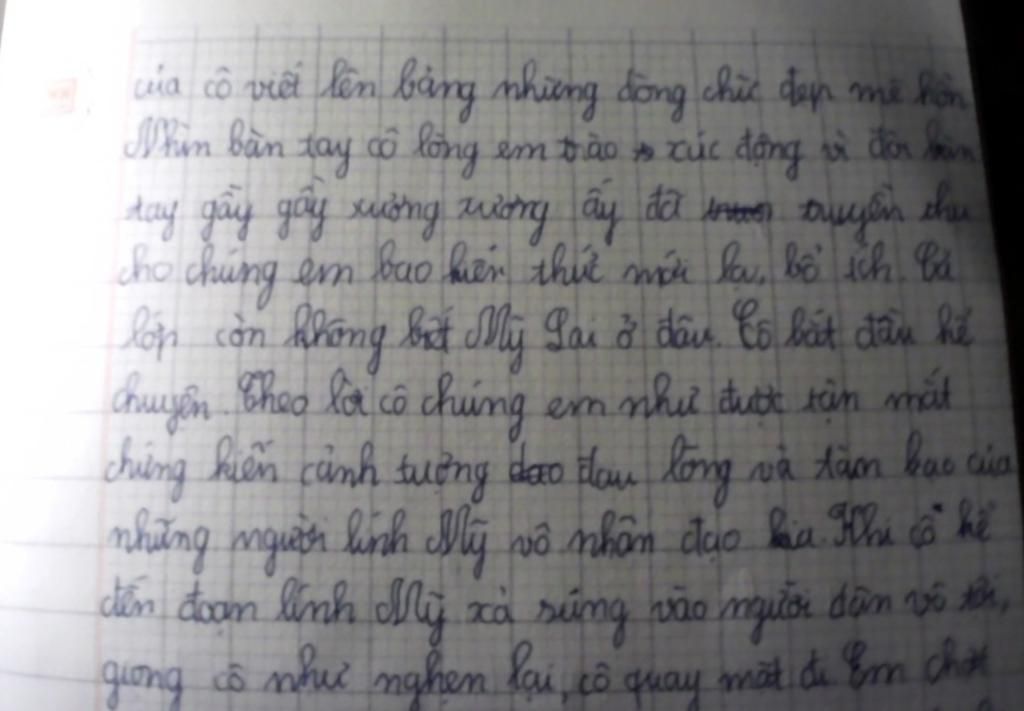 của cô viết lên bảng những dòng chữ đẹp mê hồn
Nhìn bàn tay cô lòng em trào xúc động vì đôi bàn
tay gầy gầy xương xương ấy đã truyền thu
cho chúng em bao kiến thức mới lạ, bổ ích. Cả
lớp còn không biết Mỹ Lai ở đâu. Cô bắt đầu kể
chuyện. Theo lời cô chúng em như được tận mắt
chứng kiến cảnh tượng đau lòng và tàn bạo của
những người lính Mỹ vô nhân đạo kia. Khi cô kể
đến đoạn lính Mỹ xả súng vào người dân vô tội,
giọng cô như nghẹn lại, cô quay mặt đi Em chợt